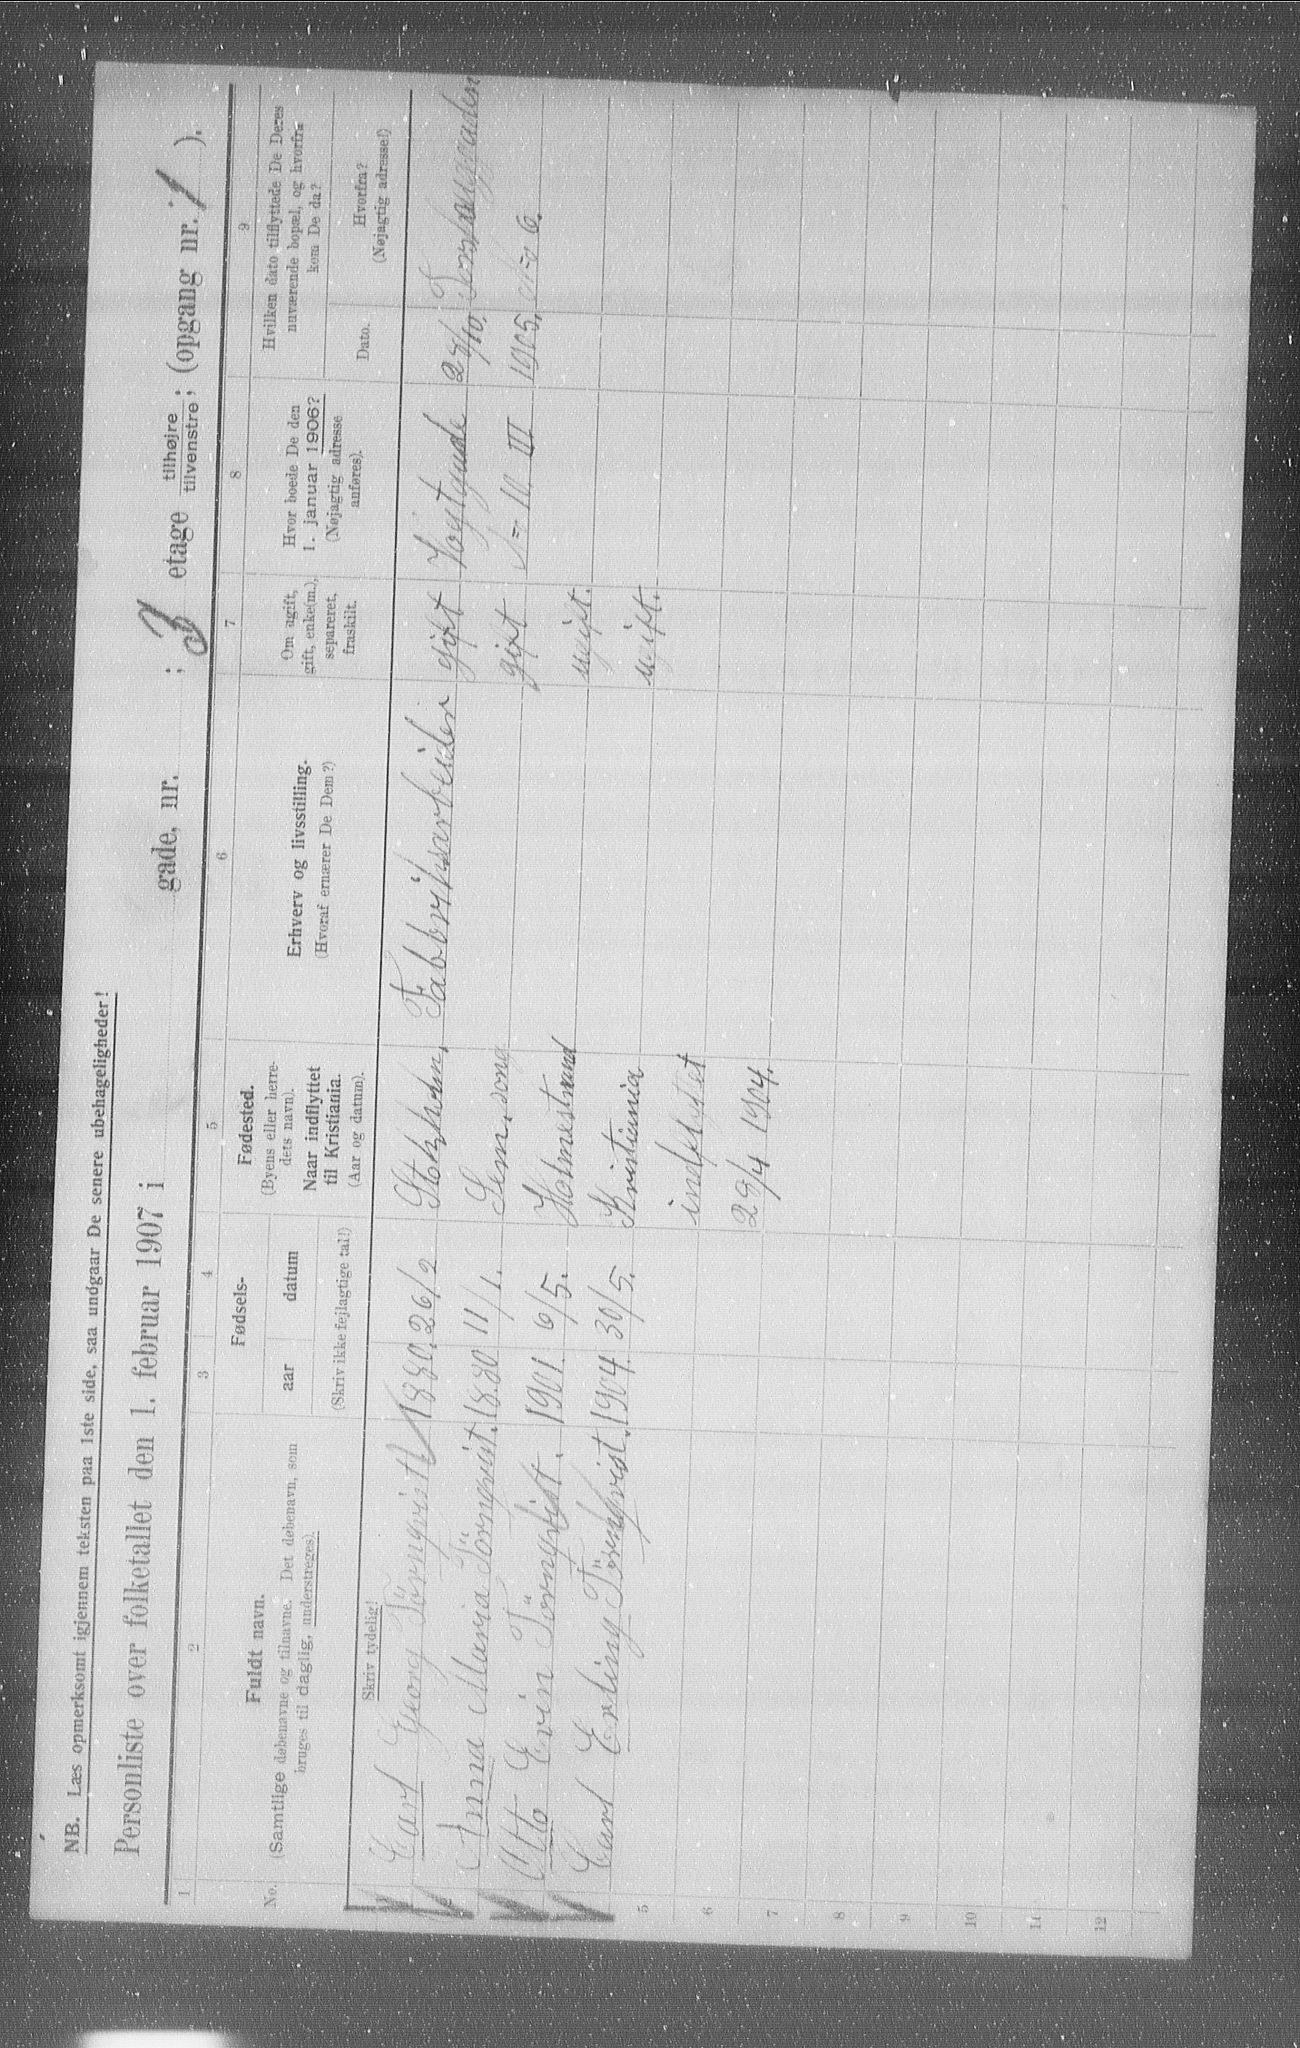 NB. Læs opmerksomt igjennem teksten paa 1ste side, saa undgaar De senere ubehageligheder!
Personliste over folketallet den 1. februar 1907 i gade, nr. ; 3 etage tilhøjre tilvenstre; (opgang nr. 1 ).
1 2 3 4 5 6 7 8 9
No.
Fuldt navn.
(Samtlige døbenavne og tilnavne. Det døbenavn, som
bruges til daglig, understreges).
Skriv tydelig!
Fødsels-
aar datum
(Skriv ikke fejlagtige tal!)
Fødested.
(Byens eller herre-
dets navn).
Naar indflyttet
til Kristiania.
(Aar og datum).
Erhverv og livsstilling.
(Hvoraf ernærer De Dem?)
Om ugift,
gift, enke(m.),
separeret,
fraskilt.
Hvor boede De den
1. januar 1906?
(Nøjagtig adresse
anføres).
Hvilken dato tilflyttede De Deres
nuværende bopæl, og hvorfra
kom De da?
Dato.
Hvorfra?
(Nøjagtig adresse!)
Carl Georg Törnqvist 1880. 26/2 Stokholm, Fabbriksarbeider gift Vogtgade 28/10.
Anna Maria Törnqvist. 1880 11/1. Sem, gift 10 III 1905. 6.
Otto Evin Törnqvist. 1901. 6/5. Holmestrand ugift.
Carl Erling Törnqvist. 1904. 30/5. Kristiania ugift.
5 indflyttet
6 28/4 1904.
7
8
9
10
11
12